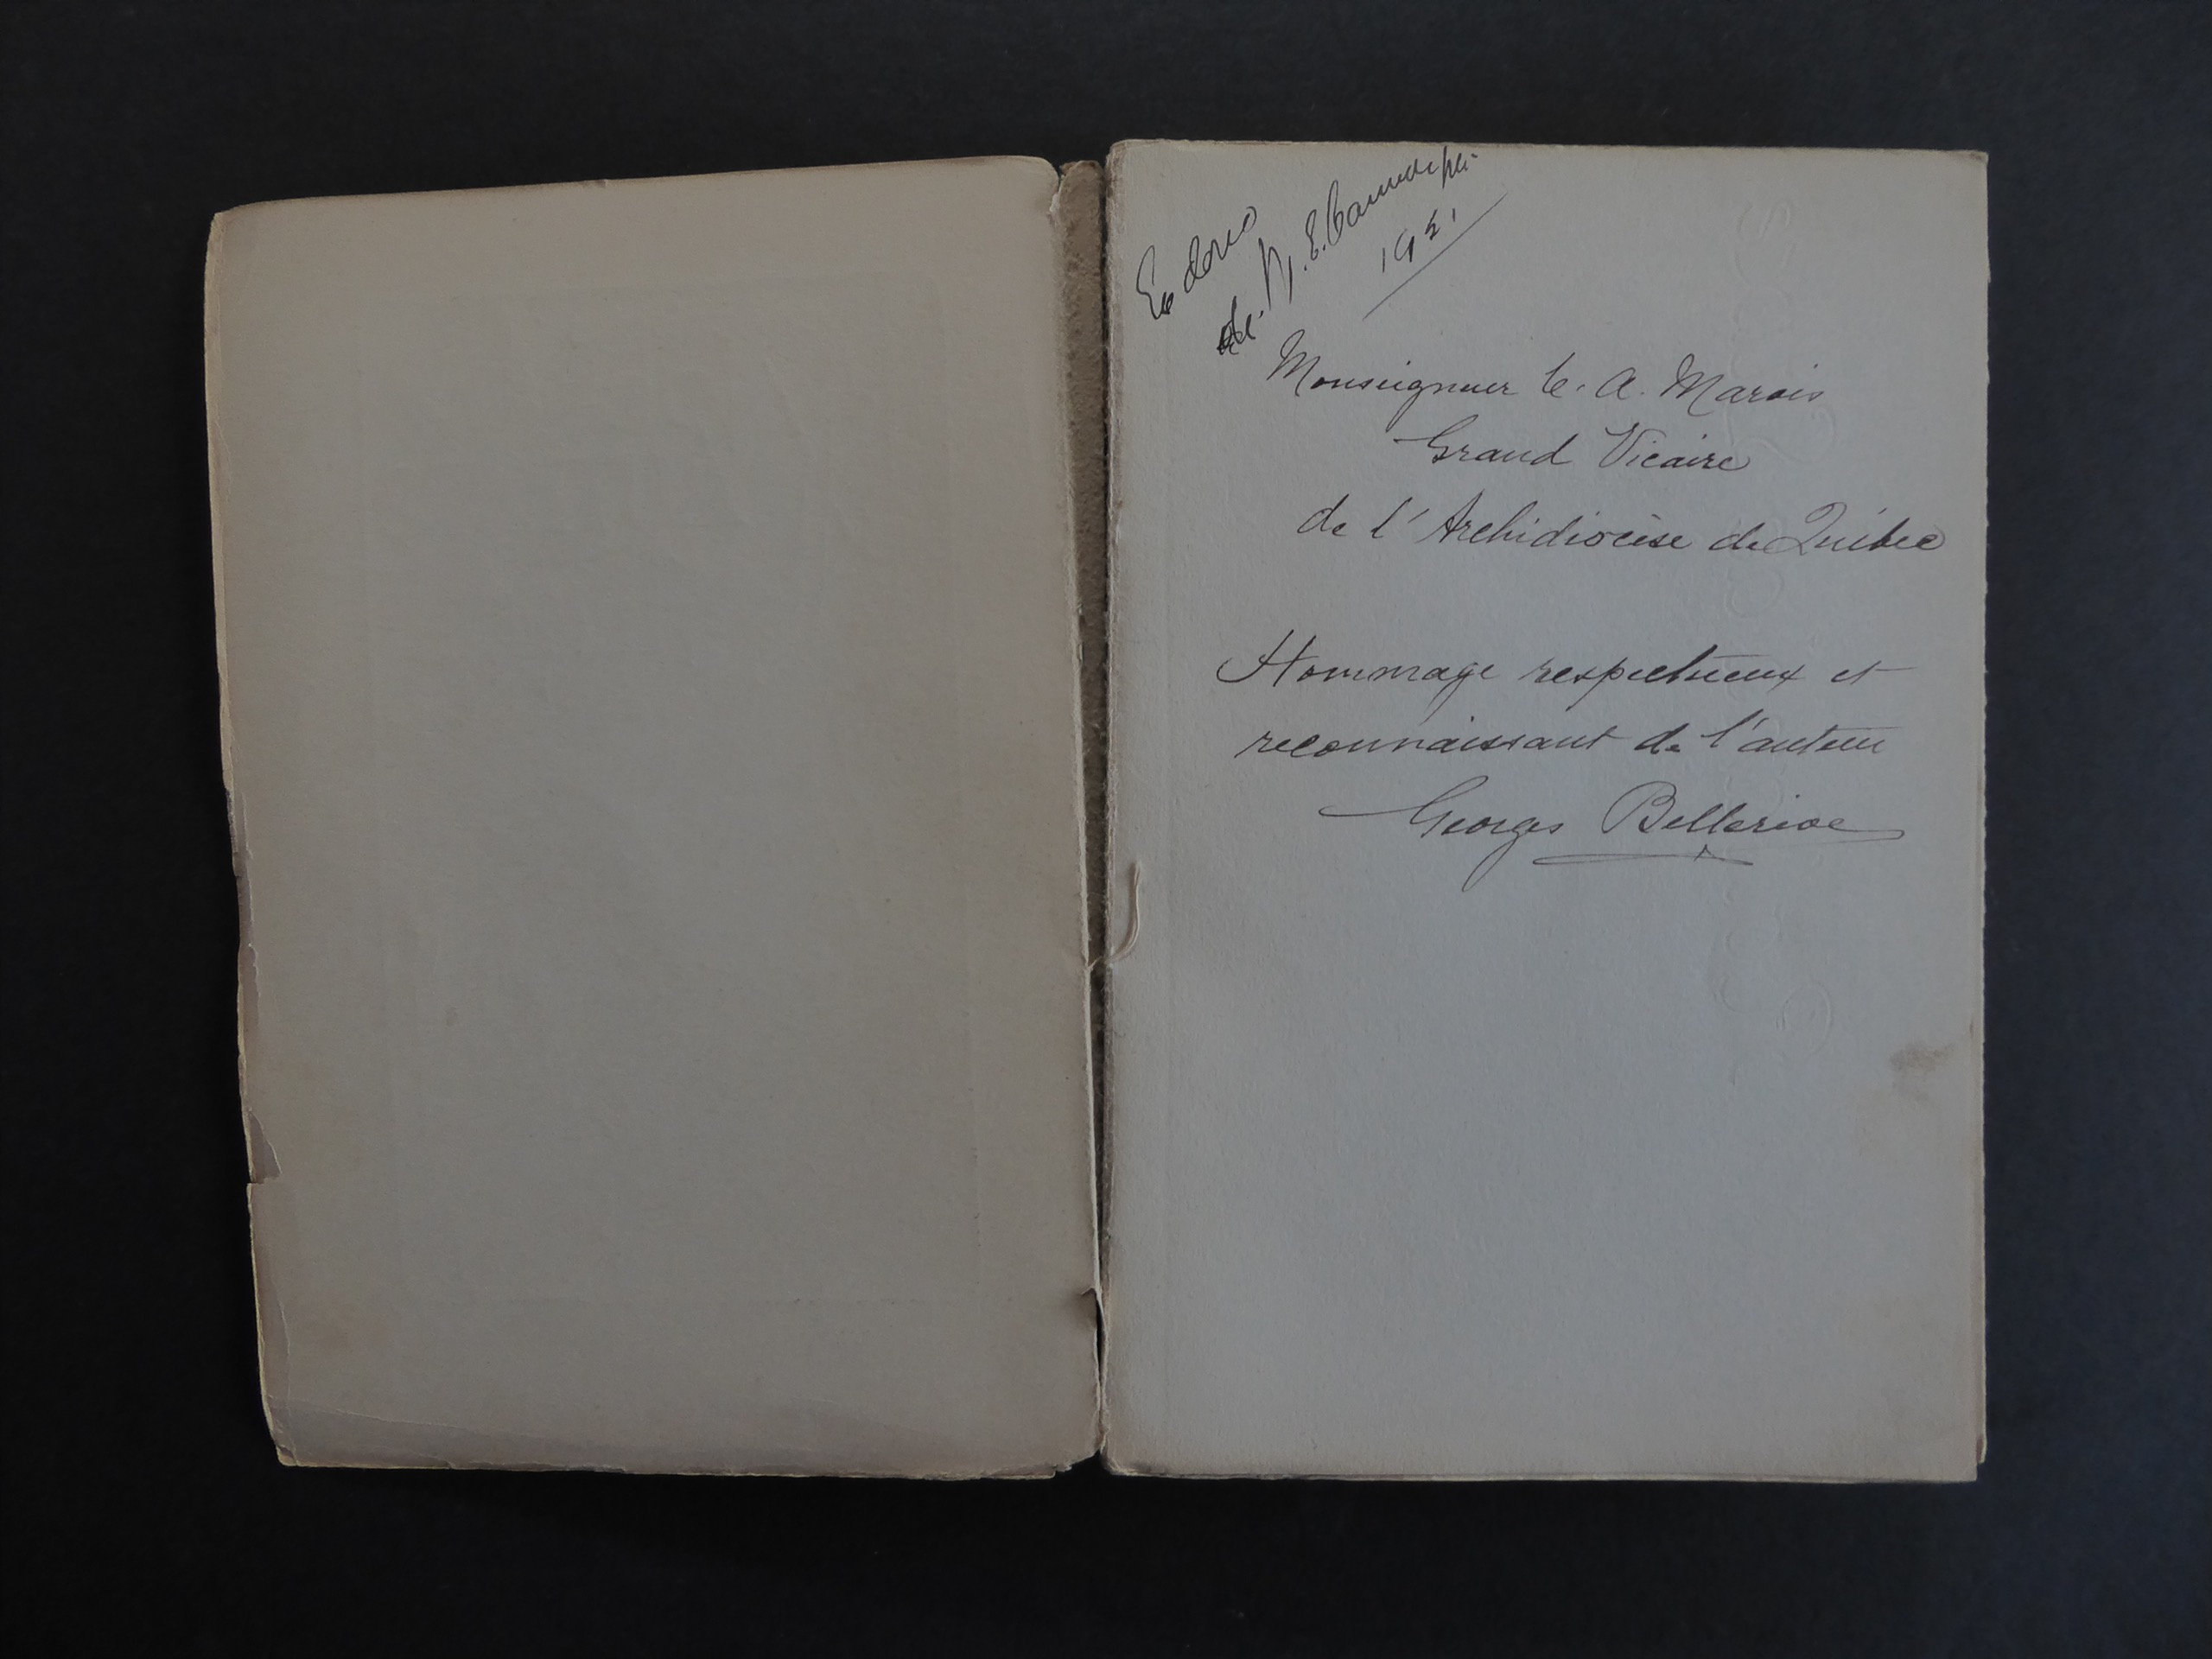 Ex dono
de
Monseigneur C. A. Marois
Grand Vicaire
de l'Archidiocèse de Québec
Hommage respectueux et
reconnaissant de l'auteur
Georges Bellerive